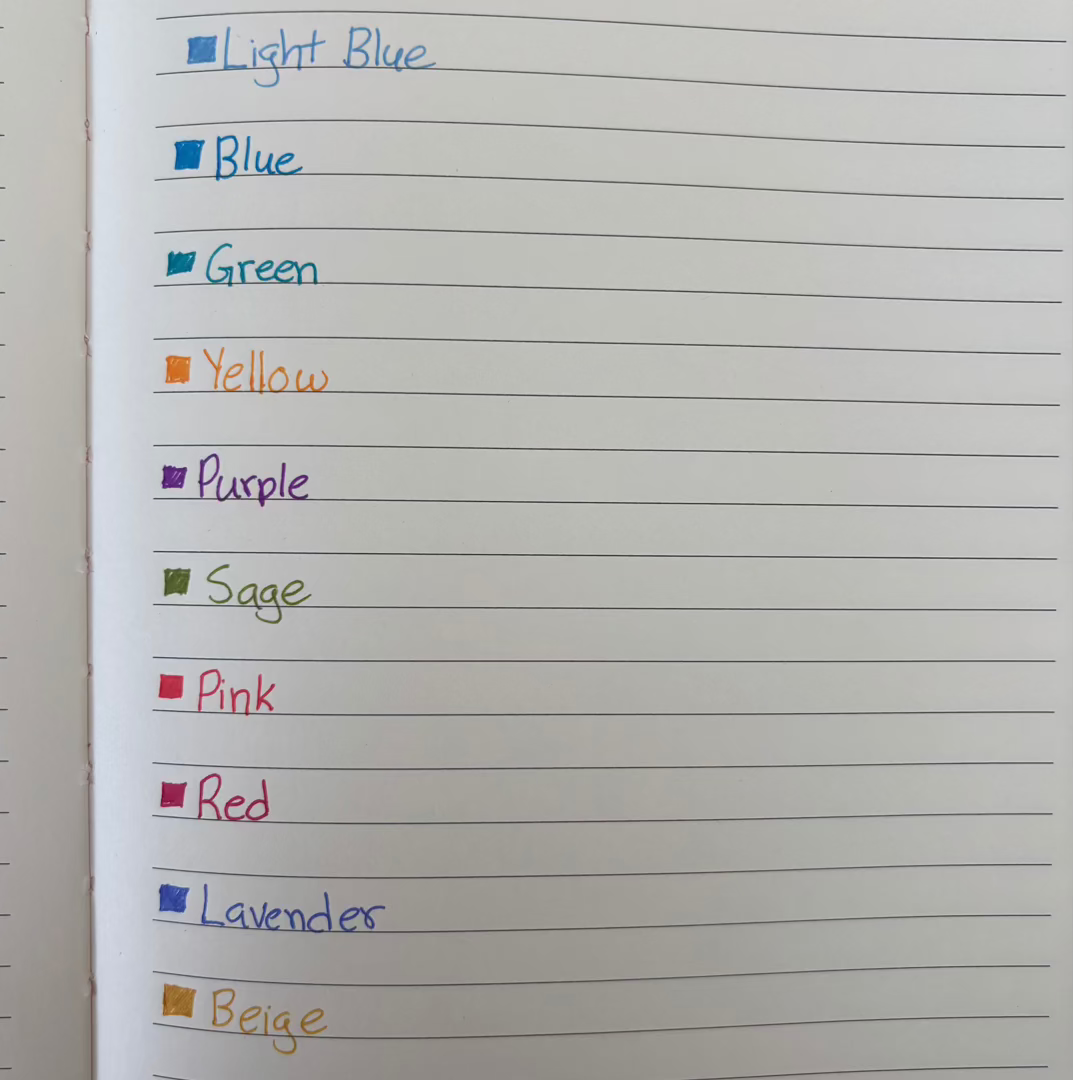 Light Blue
Blue
Green
Yellow
Purple
Sage
Pink
Red
Lavender
Beige